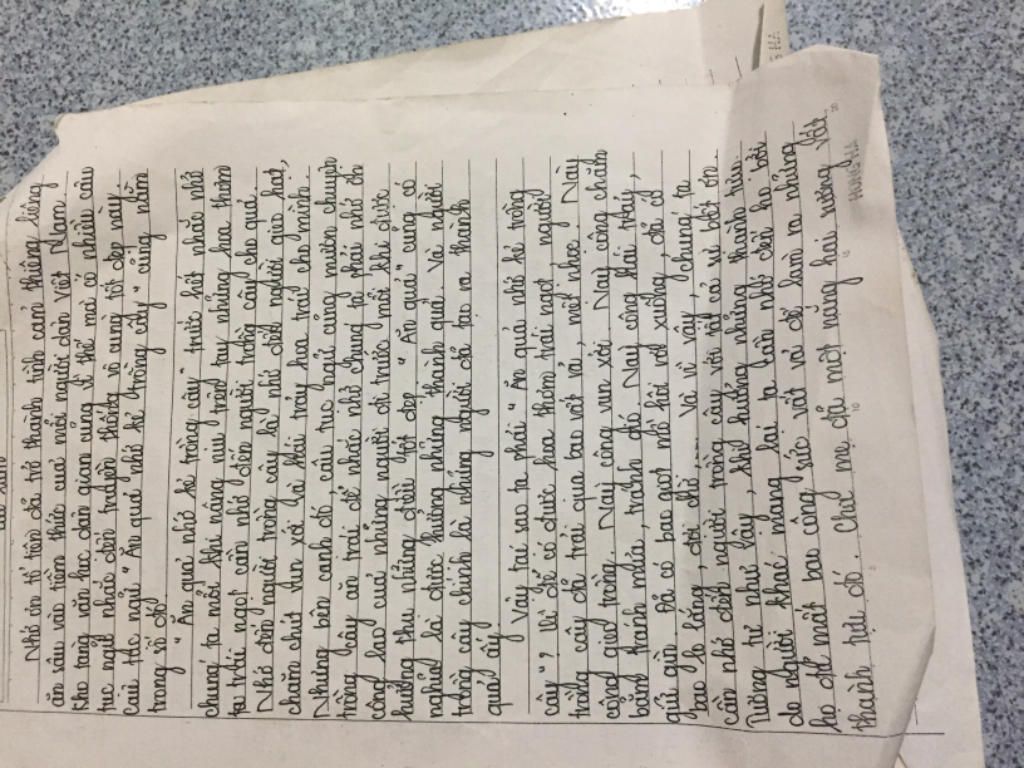 Nhớ ơn tổ tiên đã trở thành tình cảm thiêng liêng
ăn sâu vào tiềm thức của mỗi người dân Việt Nam.
Kho tàng văn học dân gian cũng vì thế mà có nhiều câu
tục ngữ nhắc đến truyền thống vô cùng tốt đẹp này.
Câu tục ngữ "Ăn quả nhớ kẻ trồng cây" cũng nằm
trong số đó.
"Ăn quả nhớ kẻ trồng cây" trước hết nhắc nhở
chúng ta mỗi khi nâng niu trên tay những hoa thơm
trái ngọt cần nhớ đến người trồng cây cho quả.
Nhớ đến người trồng cây là nhớ đến người gieo hạt,
chăm chút vun xới và hái trảy hoa trái cho mình.
Nhưng bên cạnh đó, câu tục ngữ cũng mượn chuyện
trồng cây ăn trái để nhắc nhở chúng ta phải nhớ ơn
công lao của những người đi trước mỗi khi được
hưởng thụ những điều tốt đẹp. "Ăn quả" cũng có
nghĩa là được hưởng những thành quả. Và người
trồng cây chính là những người đã tạo ra thành
quả ấy.
Vậy tại sao ta phải "Ăn quả nhớ kẻ trồng
cây", bởi để có được hoa thơm trái ngọt người
trồng cây đã trải qua bao vất vả, mệt nhọc. Này
công gieo trồng. Này công vun xới. Này công chăm
bẵm tránh mưa, tránh gió. Này công hái trảy,
giữ gìn. Đã có bao giọt mồ hôi rơi xuống, đã có
bao lo lắng, đợi chờ. Và vì vậy, chúng ta
cần nhớ đến người trồng cây với tất cả sự biết ơn.
Tương tự như vậy, khi hưởng những thành tựu
do người khác mang lại ta cần nhớ đến họ bởi
họ đã mất bao công sức vất vả để làm ra những
thành tựu đó. Cha mẹ đã một nắng hai sương vất